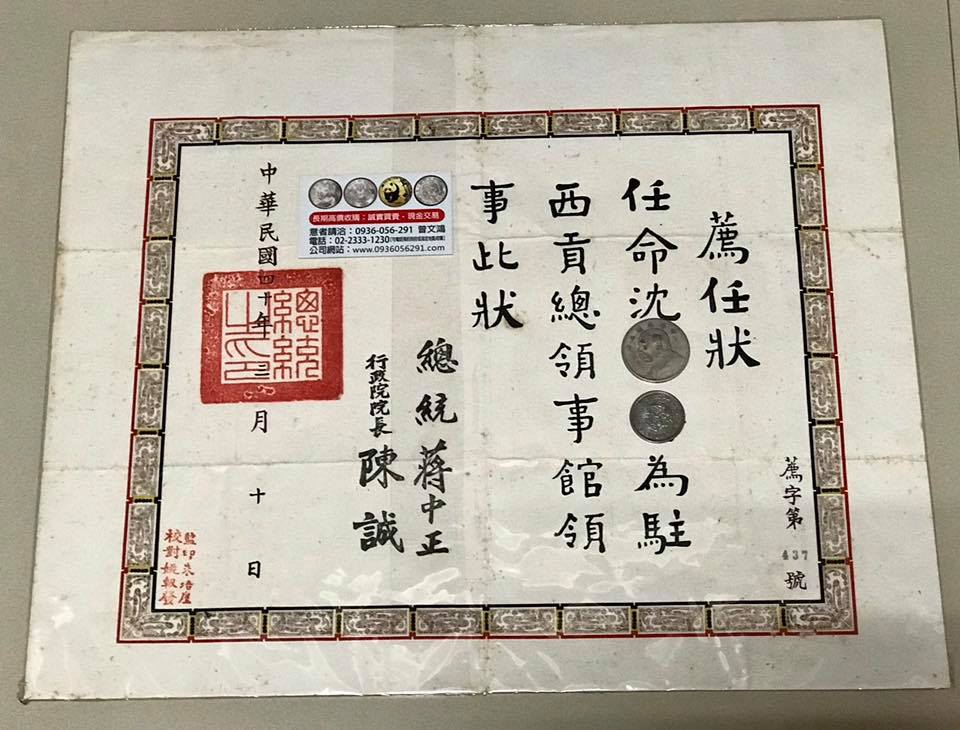 薦任狀
任命沈
為駐
西貢總領事館領
事此狀
總統蔣中正
行政院院長 陳誠
中華民國四十年三月十日
總統之印
薦字第437號
監印朱
校對姚
長期高價收購：誠實買賣，現金交易
意者請洽：0936-056-291 曾文鴻
電話：02-2333-1230
公司網站：www.0936056291.com